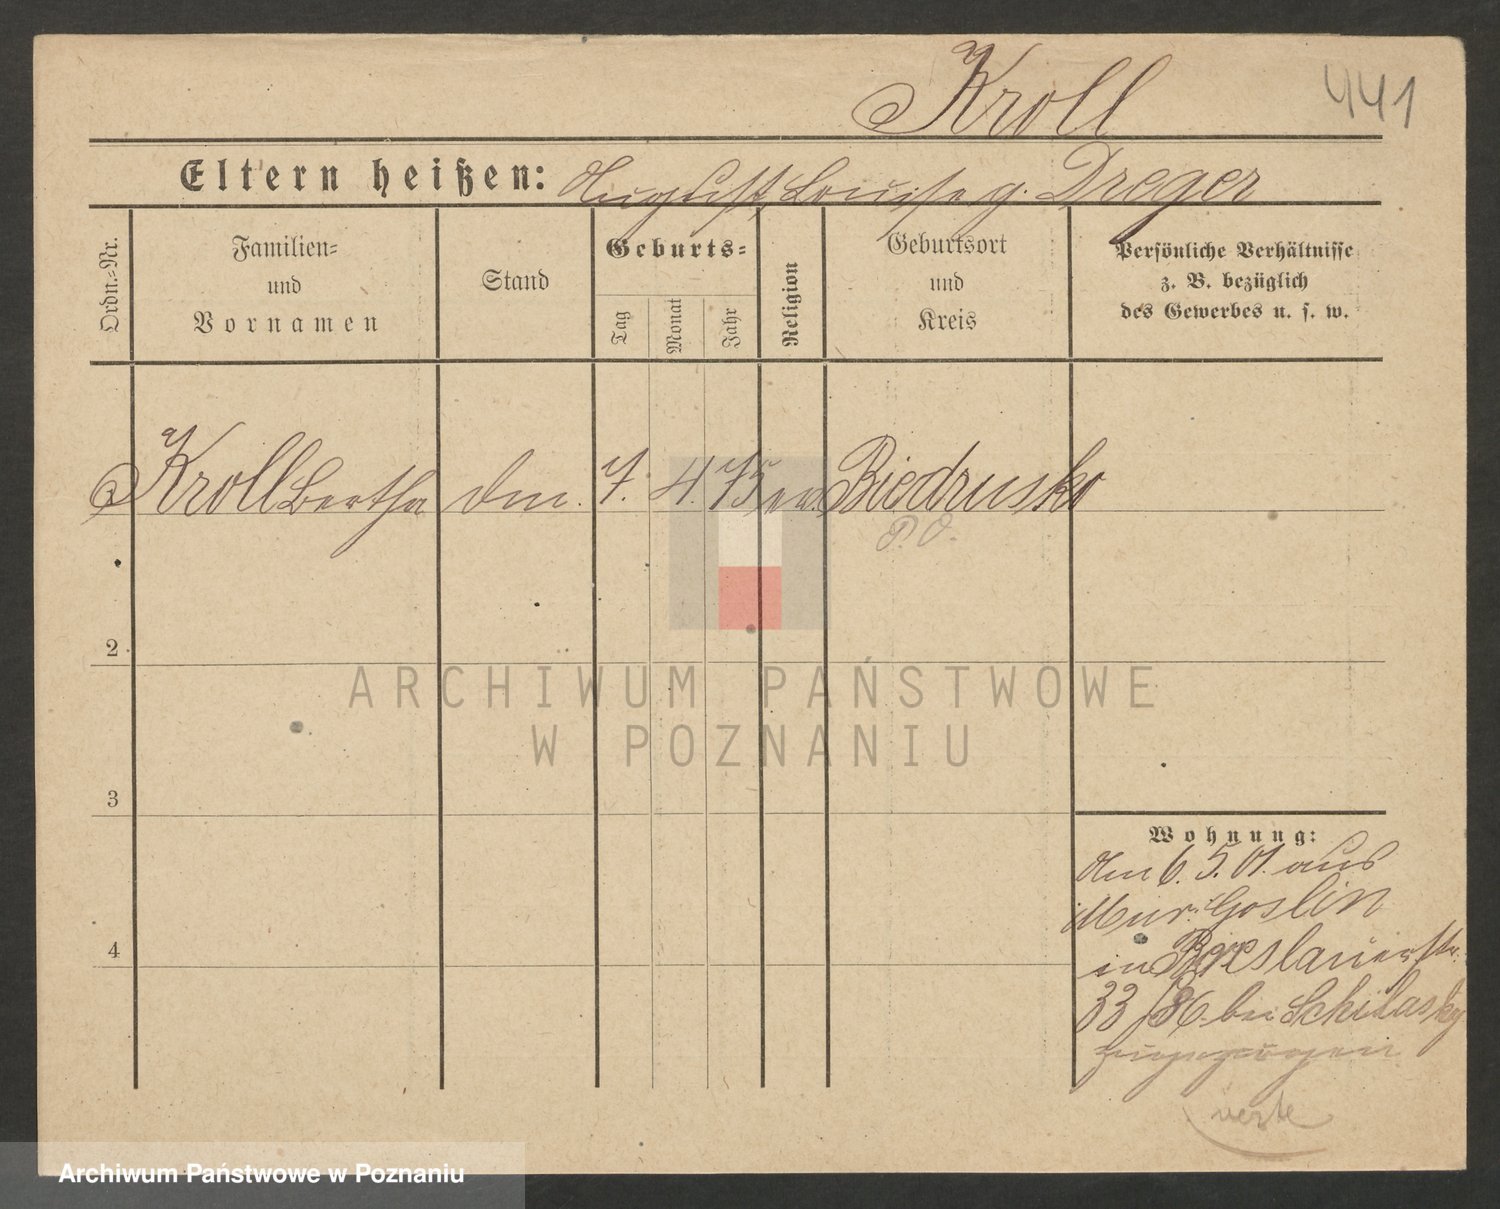 Kroll
441
Eltern heißen: August, Louise g. Dreger
Ordn.-Nr.
Familien-
und
Vornamen
Stand
Geburts-
Tag
Monat
Jahr
Religion
Geburtsort
und
Kreis
Persönliche Verhältnisse
z. B. bezüglich
des Gewerbes u. s. w.
Kroll Bertha
7. 4. 75 ev. Biedrusko
P. O.
2
3
4
ARCHIWUM PAŃSTWOWE
W POZNANIU
Wohnung:
Am 6. 5. 01. aus
Mur. Goslin
in Breslauerstr.
33/36 bei Schilasky
zugezogen
verte
Archiwum Państwowe w Poznaniu